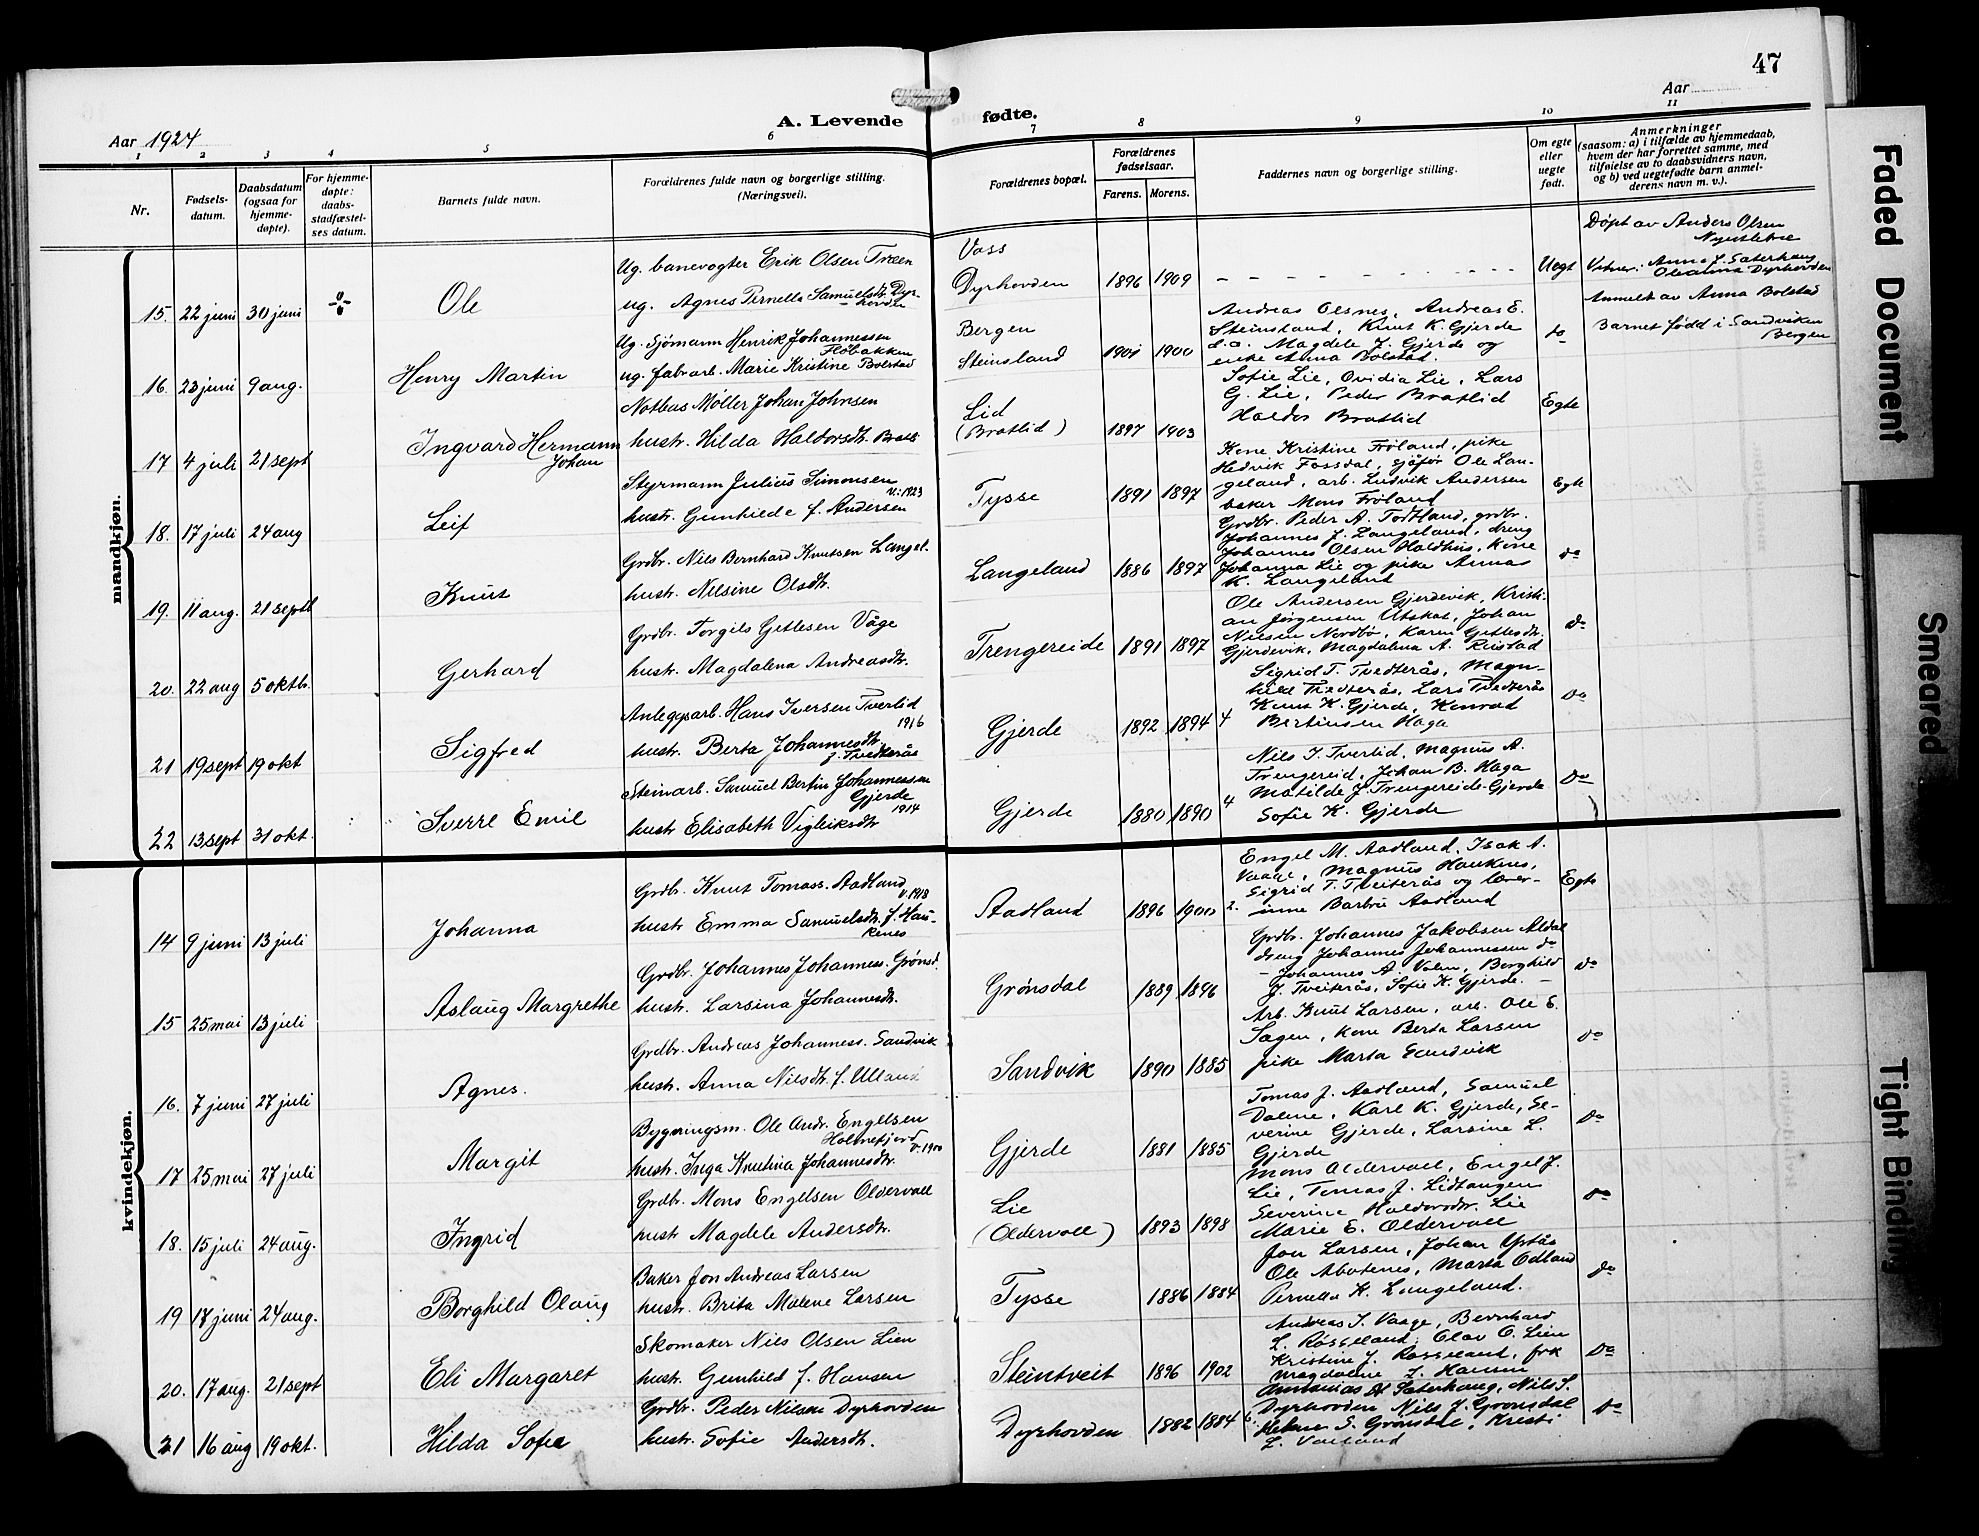 47
Aar 1924
A. Levende fødte.
Aar
1 2 3 4 5 6 7 8 9 10 11
Nr.
Fødsels-
datum.
Daabsdatum
(ogsaa for
hjemme-
døpte).
For hjemme-
døpte:
daabs-
stadfæstel-
ses datum.
Barnets fulde navn.
Forældrenes fulde navn og borgerlige stilling.
(Næringsvei).
Forældrenes bopæl.
Forældrenes
fødselsaar.
Farens. Morens.
Faddernes navn og borgerlige stilling.
Om egte
eller
uegte
født.
Anmerkninger
(saasom: a) i tilfælde av hjemmedaab,
hvem der har forrettet samme, med
tilføielse av to daabsvidners navn,
og b) ved uegtefødte barn anmel-
derens navn m. v.).
mandkjøn.
15. 22 juni 30 juni Ole
Ug. banevogter Erik Olsen Træen
ug. Agnes Pernella Samuelsdtr. Dyr-
hovden
Voss
Dyrhovden 1896 1909
Uegt
Døpt av Anders Olsen
Vitner: Anna L. Saterhaug
Oleanna Dyrhovden
16. 23 juni 9 aug. Henry Martin
Ug. Sjømann Henrik Johannessen
Fløbakken
ug. fabr.arb. Marie Kristine Bolstad
Bergen
Steinsland 1901 1900
Andreas Olsnes, Andreas E.
Steinsland, Knut K. Gjerde
s.a. Magdele J. Gjerde og
enke Anna Bolstad.
do
Anmelt av Anna Bolstad
Barnet född i Sandviken
Bergen
17 4 juli 21 sept Ingvard Hermann
Johan
Notbas Møller Johan Johnsen
hustr. Hilda Haldorsdtr. Bratl
Lid
(Bratlid) 1897 1903
Sofie Lie, Ovidia Lie, Lars
G. Lie, Peder Bratlid
Haldor Bratlid
Egte
18. 17 juli 24 aug Leif
Styrmann Julius Simonsen
v. 1923
hustr. Gunhilde f. Andersen
Tysse 1891 1897
Kone Kristine Frøland, pike
Hedvik Fossdal, sjåfør Ole Lan-
geland, arb. Ludvik Andersen
baker Mons Frøland
Egte
19. 11 aug. 21 septb Knut
Grdbr. Nils Bernhard Knutsen Langel.
hustr. Nilsine Olsdtr.
Langeland 1886 1897
Grdbr. Peder A. Todtland, grdbr.
Johannes J. Langeland, dreng
Johannes Olsen Haldhus, kone
Johanna Lie og pike Annas
K. Langeland
do
20. 22 aug 5 oktbr. Gerhard
Grdbr. Torgils Getlesen Våge
hustr. Magdalena Andreasdtr.
Trengereide 1891 1897
Ole Andersen Gjerdevik, Kristi-
an Jørgensen Utskot, Johan
Nilsen Nordbø, Karen Getlesdtr.
Gjerdevik, Magdalena A. Reistad
do
21 19 sept 19 okt Sigfred
Anleggsarb. Hans Iversen Tverlid
1916
hustr. Berta Johannesdtr.
f. Tvedterås
Gjerde 1892 1894 4
Sigrid T. Tvedterås, Magn-
hild Tvedterås, Lars Tvedterås
Knut K. Gjerde, Konrad
Bertinsen Haga
do
22 13 sept 31 okt. Sverre Emil
Steinarb. Samuel Bertin Johannessen
Gjerde
1914
hustr. Elisabeth Vigleiksdtr
Gjerde 1880 1890 4
Nils I. Tverlid, Magnus A.
Trengereid, Johan B. Haga
Matilde J. Trengereide-Gjerde
Sofie K. Gjerde
do
kvindekjøn.
14 9 juni 13 juli Johanna
Grdbr. Knut Tomass. Aadland
v. 1918
hustr. Emma Samuelsdtr. f. Hau-
kenes
Aadland 1896 1900 2.
Engel M. Aadland, Isak A.
Vaage, Magnus Haukenes,
Sigrid T. Tveiterås og lærer-
inne Barbru Aadland
Egte
15 25 mai 13 juli Aslaug Margrethe
Grdbr. Johannes Johanness. Grønsd.
hustr. Larsina Johannesdtr.
Grønsdal 1889 1896
Grdbr. Johannes Jakobsen Aldal
dreng Johannes Johannessen do
- Johannes A. Valen, Borghild
J. Tveiterås, Sofie K. Gjerde. -
do
16. 7 juni 27 juli Agnes.
Grdbr. Andreas Johanness. Sandvik
hustr. Anna Nilsdtr. f. Ulland
Sandvik 1890 1885
Arb. Knut Larsen, arb. Ole E.
Sagen, kone Berta Larsen
pike Marta Sandvik
do
17 25 mai 27 juli Margit
Bygningsm. Ole Andr. Engelsen
Holmefjord
v. 1900
hustr. Inga Knutina Johannesdtr.
Gjerde 1881 1885
Tomas J. Aadland, Samuel
Dalene, Karl K. Gjerde, Se-
verine Gjerde, Larsine L.
Gjerde
do
18. 15 juli 24 aug. Ingrid
Grdbr. Mons Engelsen Oldervoll
hustr Magdele Andersdtr.
Lie
(Oldervoll) 1893 1898
Mons Oldervoll, Engel J.
Lie, Tomas J. Lidtangen
Severine Haldorsdtr. Lie
Marie E. Oldervoll
do
19 18 juni 24 aug. Borghild Olaug
Baker Jon Andreas Larsen
hustr. Brita Malene Larsen
Tysse 1886 1884
Jon Larsen, Johan Ystås
Ole Abotnes, Marta Odland
Pernella K. Langeland.
do
20. 17 aug. 21 sept Eli Margaret
Skomaker Nils Olsen Lien
hustr. Gunhild f. Hansen
Steintveit 1896 1902
Andreas I. Vaage, Bernhard
L. Røsseland, Olav O. Lien
Kristine J. Røsseland, frk
Magdalene L. Hansen
do
21 16 aug 19 okt. Hilda Sofie
Grdbr. Peder Nilsen Dyrhovden
hustr. Sofie Andersdtr.
Dyrhovden 1882 1884 6
Antonius A. Saterhaug, Nils S.
Dyrhovden Nils J. Grønsdal
Helene S. Grønsdal, Kristi
L. Vaaland
do
Faded Document
Smeared
Tight Binding